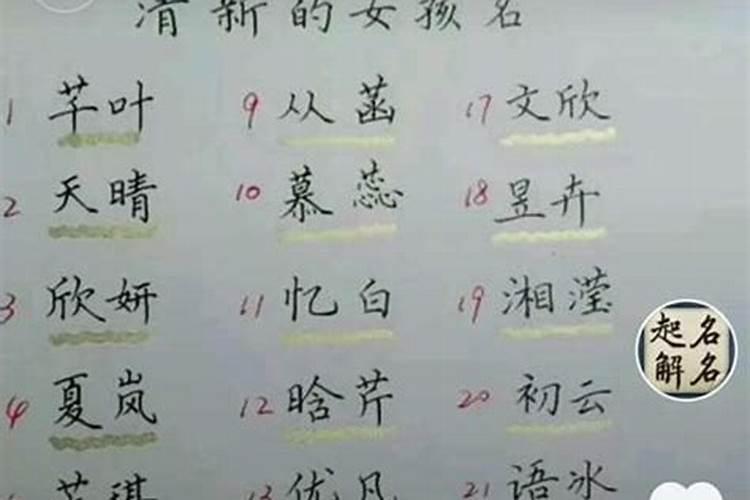 清新的女孩名
1 芊叶 9 从菡 17 文欣
2 天晴 10 慕蕊 18 昱卉
3 欣妍 11 忆白 19 湘滢
4 夏岚 12 晗芹 20 初云
13 优凡 21 语冰
起名
解名